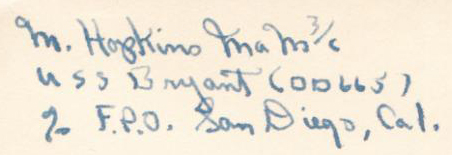 M. Hopkins MaM 3/c
USS Bryant (DD665)
℅ F.P.O. San Diego, Cal.